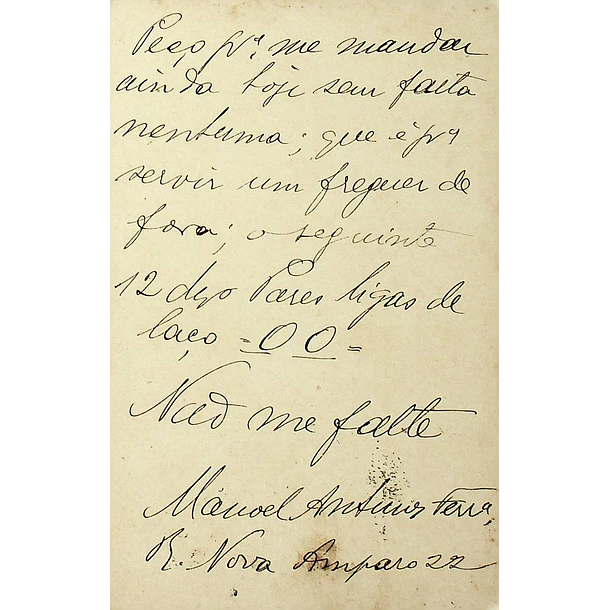 Peço prª me mandar
ainda hoje sem falta
nenhuma; que é prª
servir um freguez de
fora; o seguinte
12 dzs Pares ligas de
laço =00=
Não me falte
Manoel Antunes Terra,
R. Nova Amparo 22